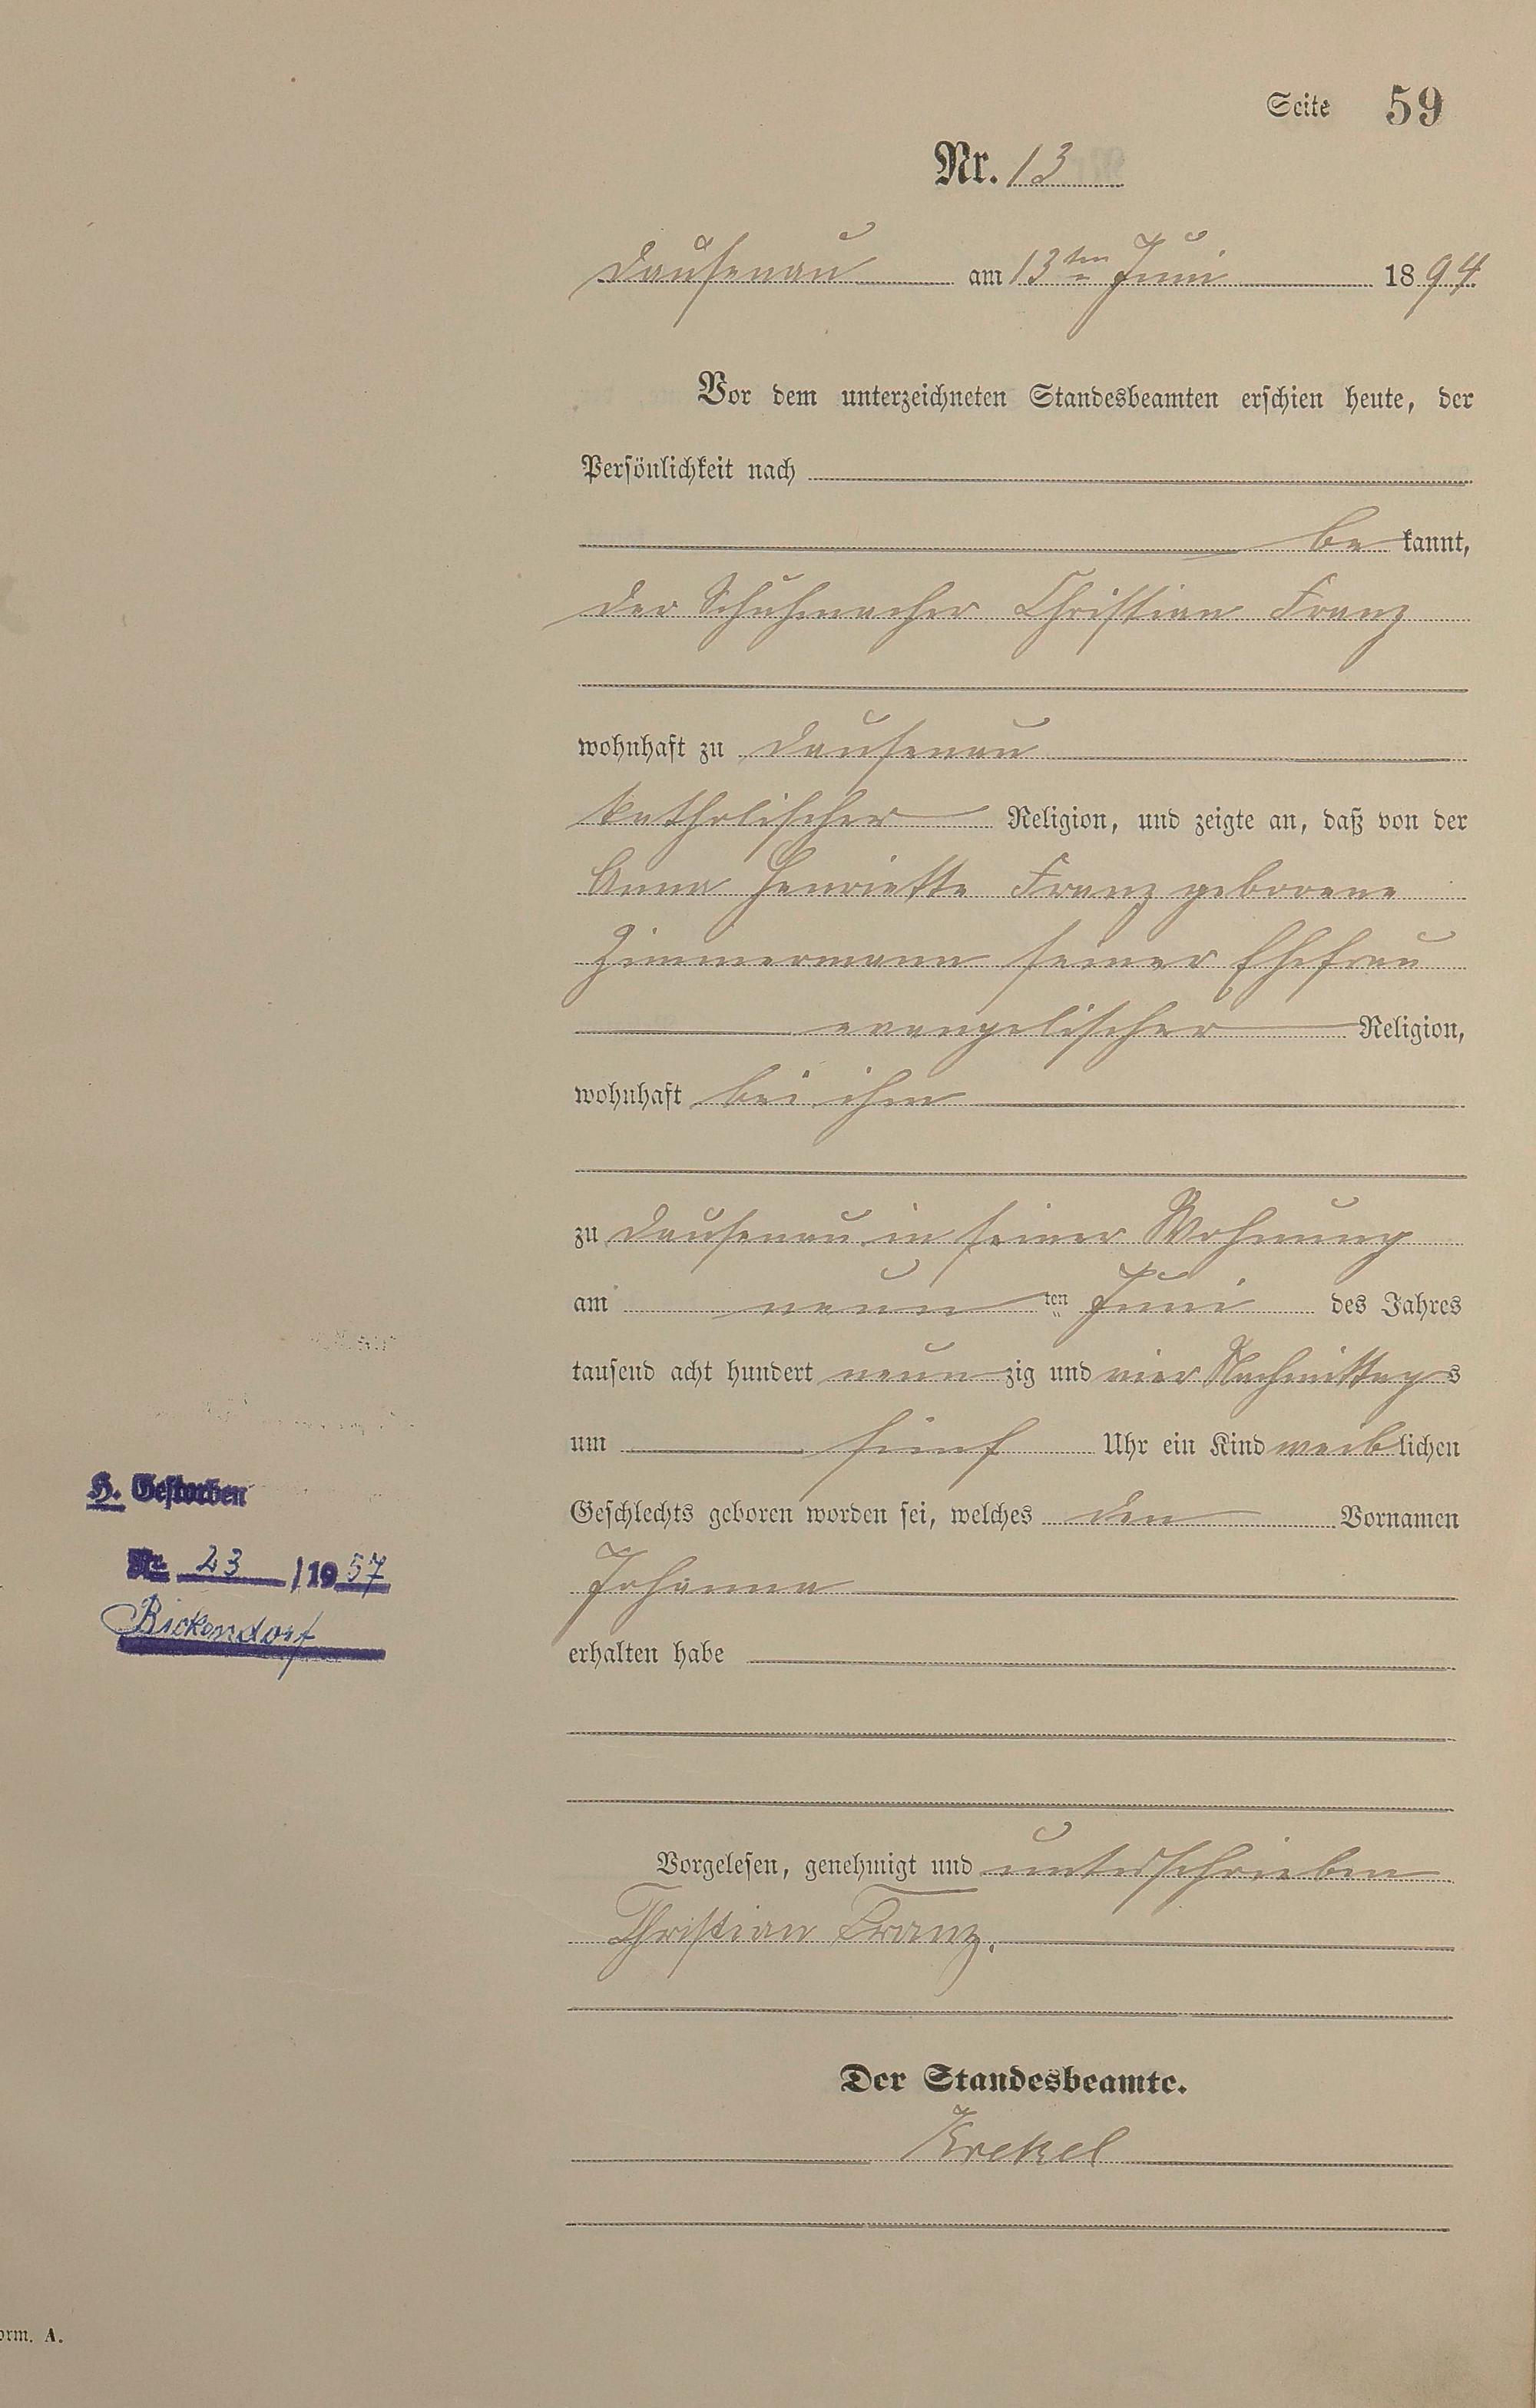 Seite 59
Nr. 13
Dausenau am 13ten Juni 1894
Vor dem unterzeichneten Standesbeamten erschien heute, der
Persönlichkeit nach
be kannt,
der Schuhmacher Christian Franz
wohnhaft zu Dausenau
katholischer Religion, und zeigte an, daß von der
Anna Henriette Franz geborene
Zimmermann seiner Ehefrau
evangelischer Religion,
wohnhaft bei ihm
zu Dausenau in seiner Wohnung
am neun ten Juni des Jahres
tausend acht hundert neun zig und vier Nachmittags
um fünf Uhr ein Kind weiblichen
H. Gestorben
Geschlechts geboren worden sei, welches den Vornamen
Nr. 23 /1957
Johanna
Bickendorf
erhalten habe
Vorgelesen, genehmigt und unterschrieben
Christian Franz.
Der Standesbeamte.
Krekel
orm. A.